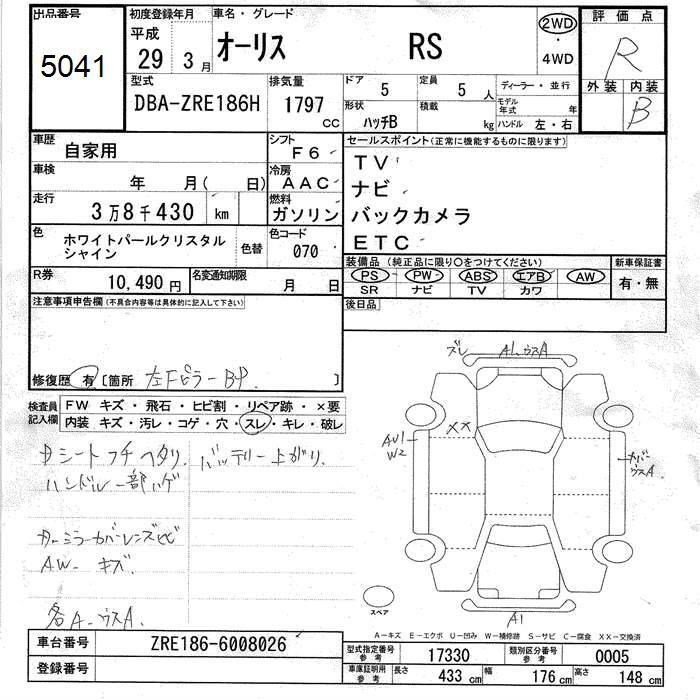 出品番号 初度登録年月 車名・グレード 評価点
5041 平成 29 3月 オーリス RS 2WD ・ 4WD R
型式 排気量 ドア 定員 ディーラー・並行 外装 内装
DBA-ZRE186H 1797 cc 5 5人 モデル年式 年 B
形状 積載
ハッチB kg ハンドル 左・右
車歴 自家用 シフト F6 セールスポイント(正常に機能するものに限ります)
車検 年 月( 日) 冷房 AAC TV
走行 3万8千430 km 燃料 ガソリン ナビ
バックカメラ
ETC
色 ホワイトパールクリスタルシャイン 色替 色コード 070
装備品 (純正品に限り○をつけてください) 新車保証書
PS PW ABS エアB AW 有・無
SR ナビ TV カワ
R券 10,490円 名変通知期限 月 日
後日品
注意事項申告欄(不具合内容等は具体的に記入して下さい)
修復歴 有 [箇所 左Fピラー ]
検査員記入欄 FW キズ・飛石・ヒビ割・リペア跡・×要
内装 キズ・汚レ・コゲ・穴・スレ・キレ・破レ
シートフチヘタリ バッテリー上がり
ハンドル一部ハゲ
ミラーカバーレンズヒビ
AW キズ
各A ウスA
ズレ A1、ウスA
XX
AU1
W2
カバー
ウスA
スペア
A1
A-キズ E-エクボ U-凹み W-補修跡 S-サビ C-腐食 XX-交換済
車台番号 ZRE186-6008026
登録番号
型式指定番号 参考 17330 類別区分番号 参考 0005
車庫証明用 参考 長さ 433cm 幅 176cm 高さ 148cm